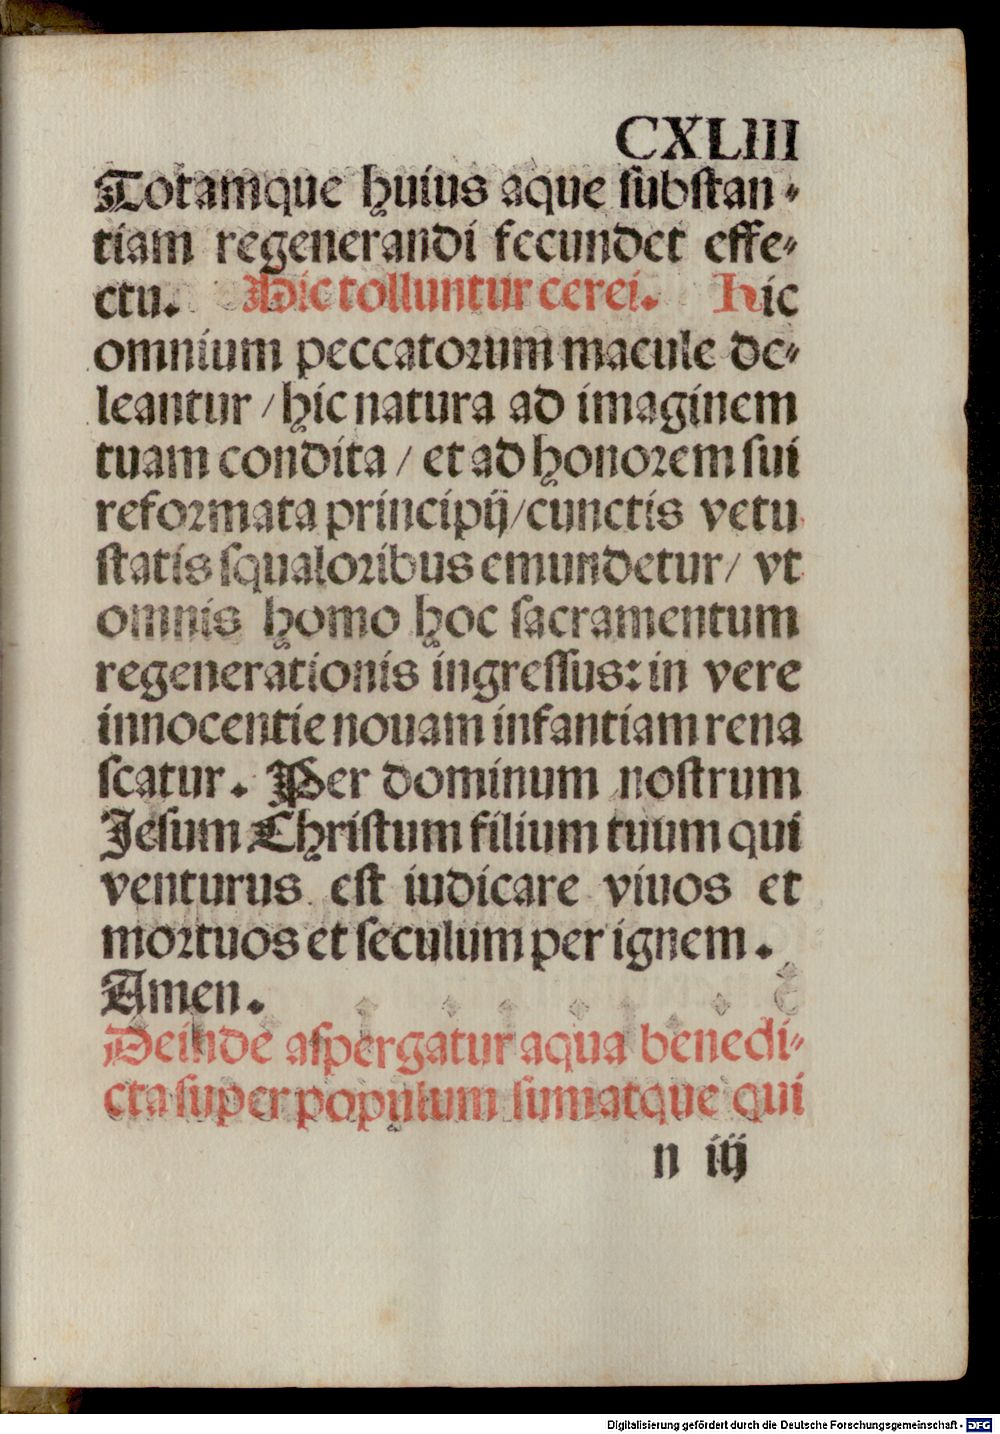 CXLIII
Totamque huius aque ſubſtan-
tiam regenerandi fecundet effe-
ctu. Hic tolluntur cerei. Hic
omnium peccatorum macule de-
leantur / hic natura ad imaginem
tuam condita / et ad honorem ſui
reformata principij / cunctis vetu
ſtatis ſqualoribus emundetur / vt
omnis homo hoc ſacramentum
regenerationis ingreſſus: in vere
innocentie nouam infantiam rena
ſcatur. Per dominum noſtrum
Jeſum Chriſtum filium tuum qui
venturus eſt iudicare viuos et
mortuos et ſeculum per ignem.
Amen.
Deinde aſpergatur aqua benedi-
cta ſuper populum ſumatque qui
n iij
Digitalisierung gefördert durch die Deutsche Forschungsgemeinschaft - DFG